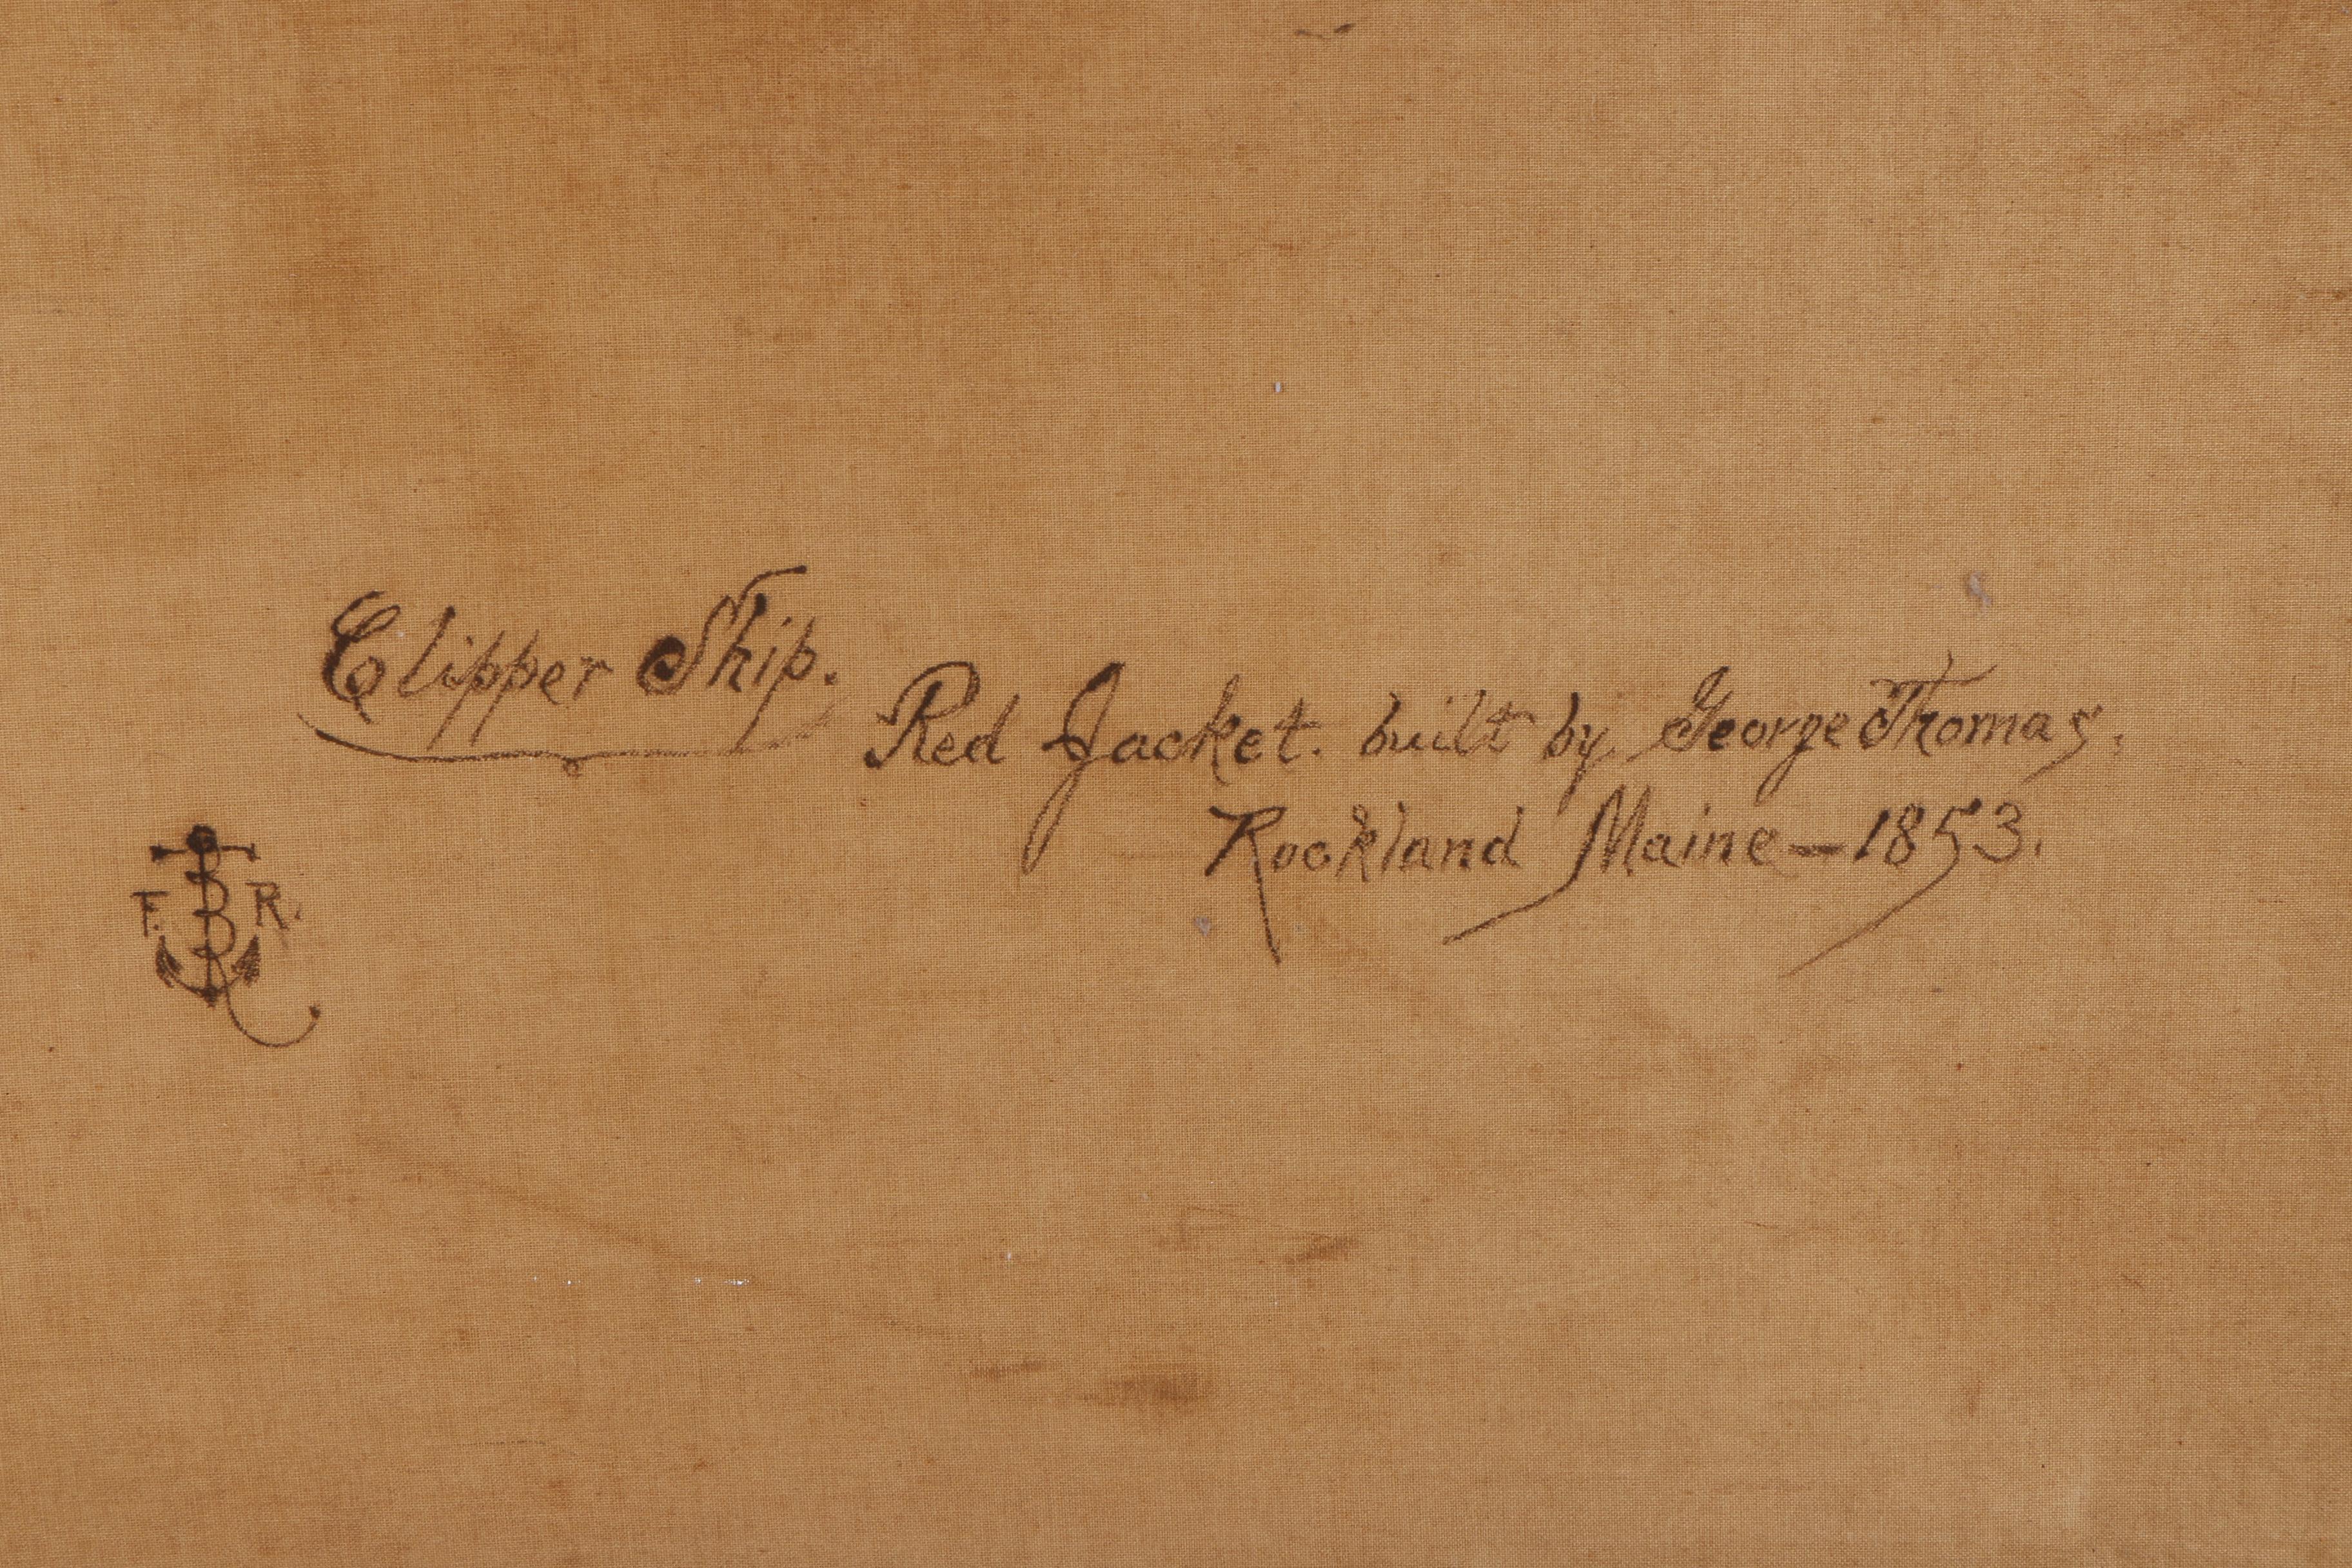 Clipper Ship.
Red Jacket. built by George Thomas.
Rockland Maine - 1853.
F. R.